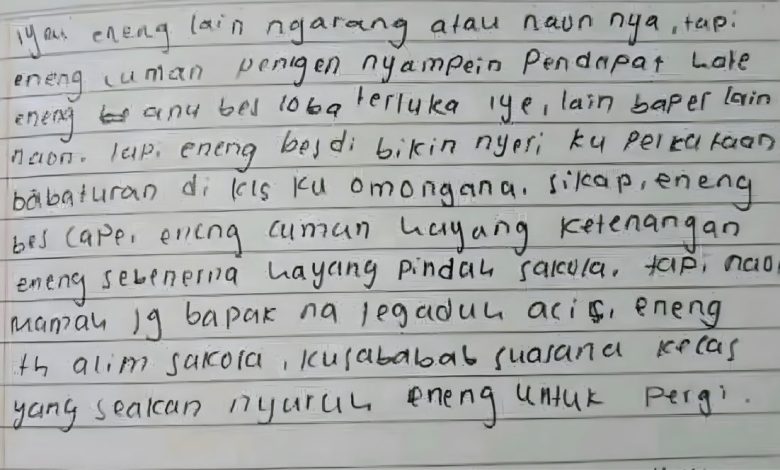 iyeu eneng lain ngarang atau naon nya, tapi
eneng cuman pengen nyampein Pendapat hate
eneng anu bes loba terluka iye, lain baper lain
naon. tapi eneng bes di bikin nyeri ku perkataan
babaturan di kls ku omongana. sikap, eneng
bes cape, eneng cuman hayang ketenangan
eneng sebenerna hayang pindah sakola. tapi nao
mamah jg bapak na tegaduh acis, eneng
th alim sakola, kusababab suasana kelas
yang seakan nyuruh eneng untuk pergi.